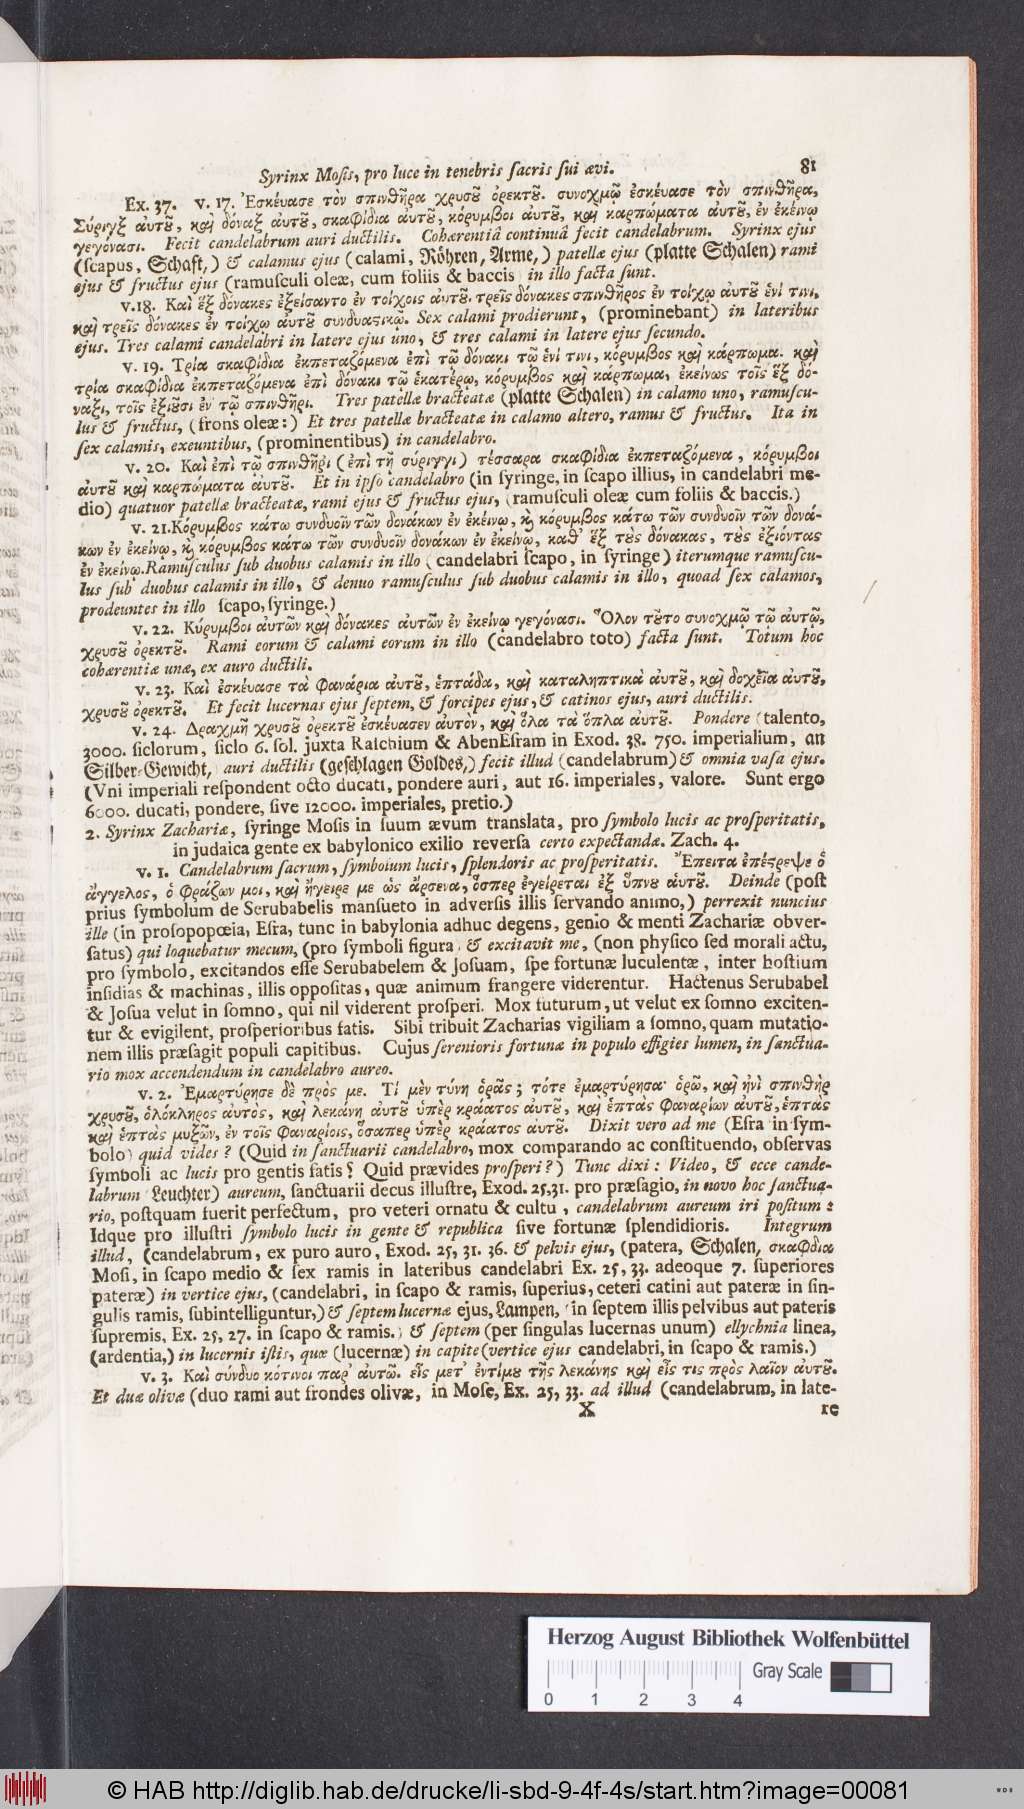 Syrinx Mosis, pro luce in tenebris sacris sui ævi. 81
Ex. 37. v. 17. Ἐσκέυασε τὸν σπινθῆρα χρυσοῦ ὀρεκτοῦ. συνοχμῶ ἐσκέυασε τὸν σπινθῆρα,
Σύριγξ ἀυτοῦ, καὶ δόναξ ἀυτοῦ, σκαφίδια ἀυτοῦ, κόρυμβοι ἀυτοῦ, καὶ καρπώματα ἀυτοῦ, ἐν ἐκείνῳ
γεγόνασι. Fecit candelabrum auri ductilis. Cohærentiâ continuâ fecit candelabrum. Syrinx ejus
(scapus, Schaft,) & calamus ejus (calami, Röhren, Arme,) patellæ ejus (platte Schalen) rami
ejus & fructus ejus (ramusculi oleæ, cum foliis & baccis) in illo facta sunt.
v.18. Καὶ ἓξ δόνακες ἐξείσαντο ἐν τοίχοις ἀυτοῦ. τρεῖς δόνακες σπινθῆρος ἐν τοίχῳ ἀυτοῦ ἑνί τινι,
καὶ τρεῖς δόνακες ἐν τοίχῳ ἀυτοῦ συνδυαστικῷ. Sex calami prodierunt, (prominebant) in lateribus
ejus. Tres calami candelabri in latere ejus uno, & tres calami in latere ejus secundo.
v. 19. Τρία σκαφίδια ἐκπεταζόμενα ἐπὶ τῷ δόνακι τῷ ἑνί τινι, κόρυμβος καὶ κάρπωμα. καὶ
τρία σκαφίδια ἐκπεταζόμενα ἐπὶ δόνακι τῷ ἑκατέρῳ, κόρυμβος καὶ κάρπωμα, ἐκείνως τοῖς ἓξ δό-
ναξι, τοῖς ἐξιοῦσι ἐν τῷ σπινθῆρι. Tres patellæ bracteatæ (platte Schalen) in calamo uno, ramuscu-
lus & fructus, (frons oleæ:) Et tres patellæ bracteatæ in calamo altero, ramus & fructus. Ita in
sex calamis, exeuntibus, (prominentibus) in candelabro.
v. 20. Καὶ ἐπὶ τῷ σπινθῆρι (ἐπὶ τῇ σύριγγι) τέσσαρα σκαφίδια ἐκπεταζόμενα, κόρυμβοι
ἀυτοῦ καὶ καρπώματα ἀυτοῦ. Et in ipso candelabro (in syringe, in scapo illius, in candelabri me-
dio) quatuor patellæ bracteatæ, rami ejus & fructus ejus, (ramusculi oleæ cum foliis & baccis.)
v. 21. Κόρυμβος κάτω συνδυοῖν τῶν δονάκων ἐν ἐκείνῳ, καὶ κόρυμβος κάτω τῶν συνδυοῖν τῶν δονά-
κων ἐν ἐκείνῳ, καὶ κόρυμβος κάτω τῶν συνδυοῖν δονάκων ἐν ἐκείνῳ, καθ' ἓξ τοὺς δόνακας, τοὺς ἐξιόντας
ἐν ἐκείνῳ. Ramusculus sub duobus calamis in illo (candelabri scapo, in syringe) iterumque ramuscu-
lus sub duobus calamis in illo, & denuo ramusculus sub duobus calamis in illo, quoad sex calamos,
prodeuntes in illo scapo, syringe.)
v. 22. Κύρυμβοι ἀυτῶν καὶ δόνακες ἀυτῶν ἐν ἐκείνῳ γεγόνασι. Ὅλον τοῦτο συνοχμῷ τῷ ἀυτῷ,
χρυσοῦ ὀρεκτοῦ. Rami eorum & calami eorum in illo (candelabro toto) facta sunt. Totum hoc
cohærentiæ unæ, ex auro ductili.
v. 23. Καὶ ἐσκέυασε τὰ φανάρια ἀυτοῦ, ἑπτάδα, καὶ καταληπτικὰ ἀυτοῦ, καὶ δοχεῖα ἀυτοῦ,
χρυσοῦ ὀρεκτοῦ. Et fecit lucernas ejus septem, & forcipes ejus, & catinos ejus, auri ductilis.
v. 24. Δραχμῇ χρυσοῦ ὀρεκτοῦ ἐσκέυασεν ἀυτὸν, καὶ ὅλα τὰ ὅπλα ἀυτοῦ. Pondere (talento,
3000. siclorum, siclo 6. sol. juxta Raschium & AbenEsram in Exod. 38. 750. imperialium, an
Silber-Gewicht,) auri ductilis (geschlagen Goldes,) fecit illud (candelabrum) & omnia vasa ejus.
(Vni imperiali respondent octo ducati, pondere auri, aut 16. imperiales, valore. Sunt ergo
6000. ducati, pondere, sive 12000. imperiales, pretio.)
2. Syrinx Zachariæ, syringe Mosis in suum ævum translata, pro symbolo lucis ac prosperitatis,
in judaica gente ex babylonico exilio reversa certo expectandæ. Zach. 4.
v. 1. Candelabrum sacrum, symbolum lucis, splendoris ac prosperitatis. Ἔπειτα ἐπέστρεψε ὁ
ἄγγελος, ὁ φράζων μοι, καὶ ἤγειρε με ὡς ἄρσενα, ὅσπερ ἐγείρεται ἐξ ὕπνου ἁυτοῦ. Deinde (post
prius symbolum de Serubabelis mansueto in adversis illis servando animo,) perrexit nuncius
ille (in prosopopœia, Esra, tunc in babylonia adhuc degens, genio & menti Zachariæ obver-
satus) qui loquebatur mecum, (pro symboli figura) & excitavit me, (non physico sed morali actu,
pro symbolo, excitandos esse Serubabelem & Josuam, spe fortunæ luculentæ, inter hostium
insidias & machinas, illis oppositas, quæ animum frangere viderentur. Hactenus Serubabel
& Josua velut in somno, qui nil viderent prosperi. Mox futurum, ut velut ex somno exciten-
tur & evigilent, prosperioribus fatis. Sibi tribuit Zacharias vigiliam a somno, quam mutatio-
nem illis præsagit populi capitibus. Cujus serenioris fortunæ in populo effigies lumen, in sanctua-
rio mox accendendum in candelabro aureo.
v. 2. Ἐμαρτύρησε δὲ πρὸς με. Τί μὲν τύνη ὁρᾷς; τότε ἐμαρτύρησα· ὁρῶ, καὶ ἠνὶ σπινθὴρ
χρυσοῦ, ὁλόκληρος ἀυτὸς, καὶ λεκάνη ἀυτοῦ ὑπὲρ κράατος ἀυτοῦ, καὶ ἑπτὰς φαναρίων ἀυτοῦ, ἑπτὰς
καὶ ἑπτὰς μυξῶν, ἐν τοῖς φαναρίοις, ὅσαπερ ὑπὲρ κράατος ἀυτοῦ. Dixit vero ad me (Esra in sym-
bolo) quid vides? (Quid in sanctuarii candelabro, mox comparando ac constituendo, observas
symboli ac lucis pro gentis fatis? Quid prævides prosperi?) Tunc dixi: Video, & ecce cande-
labrum (Leuchter) aureum, sanctuarii decus illustre, Exod. 25,31. pro præsagio, in novo hoc sanctua-
rio, postquam fuerit perfectum, pro veteri ornatu & cultu, candelabrum aureum iri positum:
Idque pro illustri symbolo lucis in gente & republica sive fortunæ splendidioris. Integrum
illud, (candelabrum, ex puro auro, Exod. 25, 31. 36. & pelvis ejus, (patera, Schalen, σκαφίδια
Mosi, in scapo medio & sex ramis in lateribus candelabri Ex. 25, 33. adeoque 7. superiores
pateræ) in vertice ejus, (candelabri, in scapo & ramis, superius, ceteri catini aut pateræ in sin-
gulis ramis, subintelliguntur,) & septem lucernæ ejus, Lampen, (in septem illis pelvibus aut pateris
supremis, Ex. 25, 27. in scapo & ramis.) & septem (per singulas lucernas unum) ellychnia linea,
(ardentia,) in lucernis istis, quæ (lucernæ) in capite (vertice ejus candelabri, in scapo & ramis.)
v. 3. Καὶ σύνδυο κότινοι παρ' ἀυτῷ. εἷς μετ' ἐντίμου τῆς λεκάνης καὶ εἷς τις πρὸς λαῖον ἀυτοῦ.
Et duæ olivæ (duo rami aut frondes olivæ, in Mose, Ex. 25, 33. ad illud (candelabrum, in late-
X re
Herzog August Bibliothek Wolfenbüttel
Gray Scale
0 1 2 3 4
© HAB http://diglib.hab.de/drucke/li-sbd-9-4f-4s/start.htm?image=00081